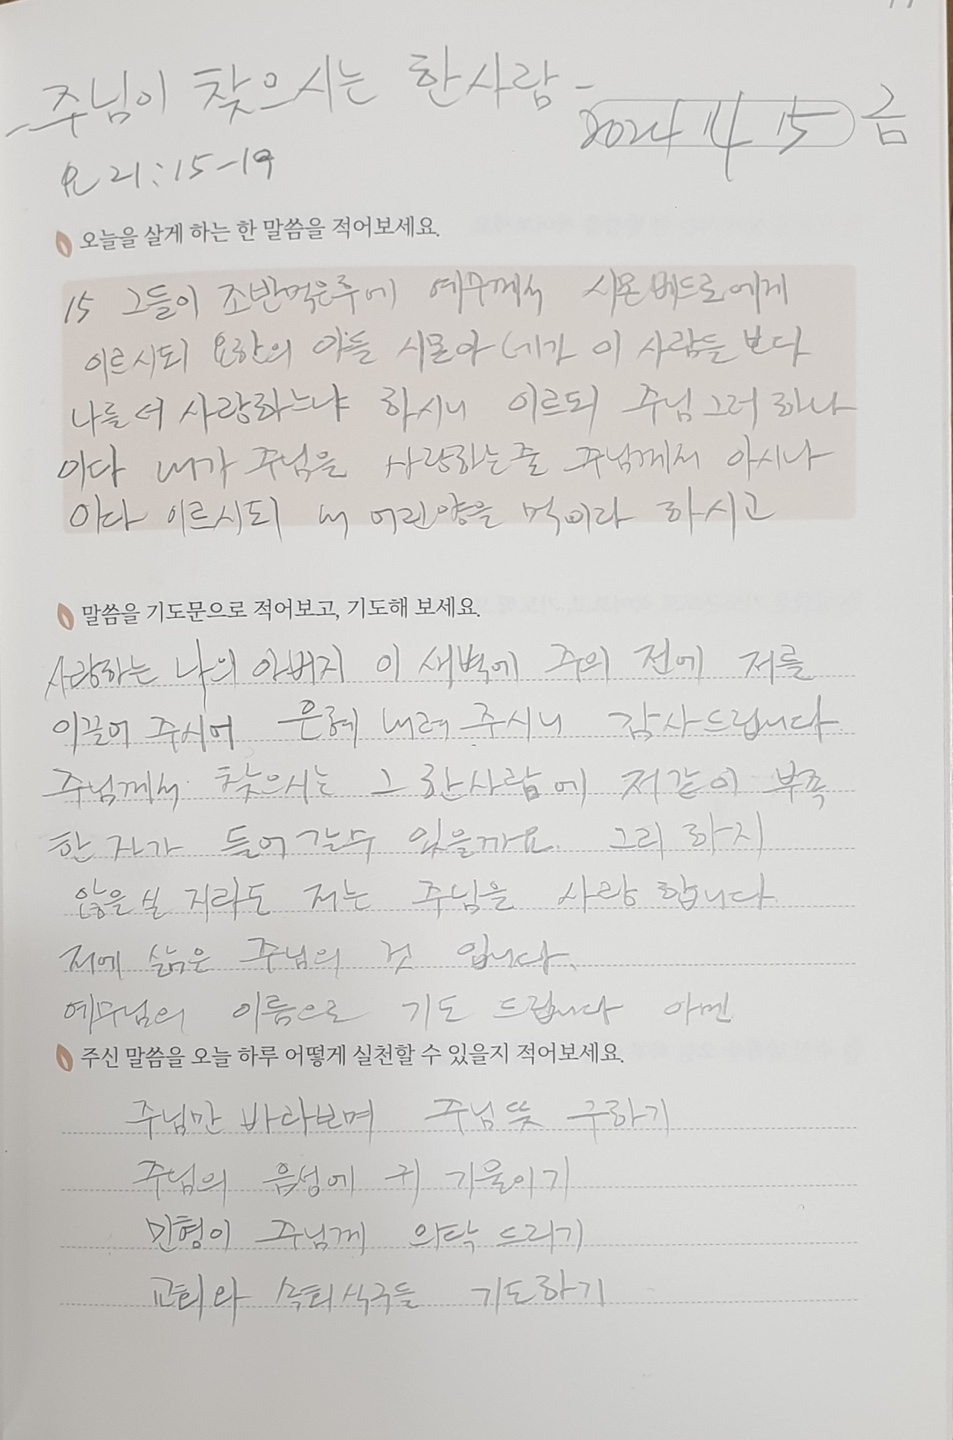 주님이 찾으시는 한사람 -
2024 11 15 금
요 21:15-19
오늘을 살게 하는 한 말씀을 적어보세요.
15 그들이 조반먹은후에 예수께서 시몬베드로에게
이르시되 요한의 아들 시몬아 네가 이 사람들 보다
나를 더 사랑하느냐 하시니 이르되 주님 그러 하나
이다 내가 주님을 사랑하는줄 주님께서 아시나
이다 이르시되 내 어린양을 먹이라 하시고
말씀을 기도문으로 적어보고, 기도해 보세요.
사랑하는 나의 아버지 이 새벽에 주의 전에 저를
이끌어 주시어 은혜 내려 주시니 감사드립니다
주님께서 찾으시는 그 한사람에 저같이 부족
한 자가 들어 갈수 있을까요. 그리 하지
않을실 지라도 저는 주님을 사랑 합니다.
저에 삶은 주님의 것 입니다.
예수님의 이름으로 기도 드립니다 아멘
주신 말씀을 오늘 하루 어떻게 실천할 수 있을지 적어보세요.
주님만 바라보며 주님뜻 구하기
주님의 음성에 귀 기울이기
민형이 주님께 의탁 드리기
교회와 속회식구들 기도하기